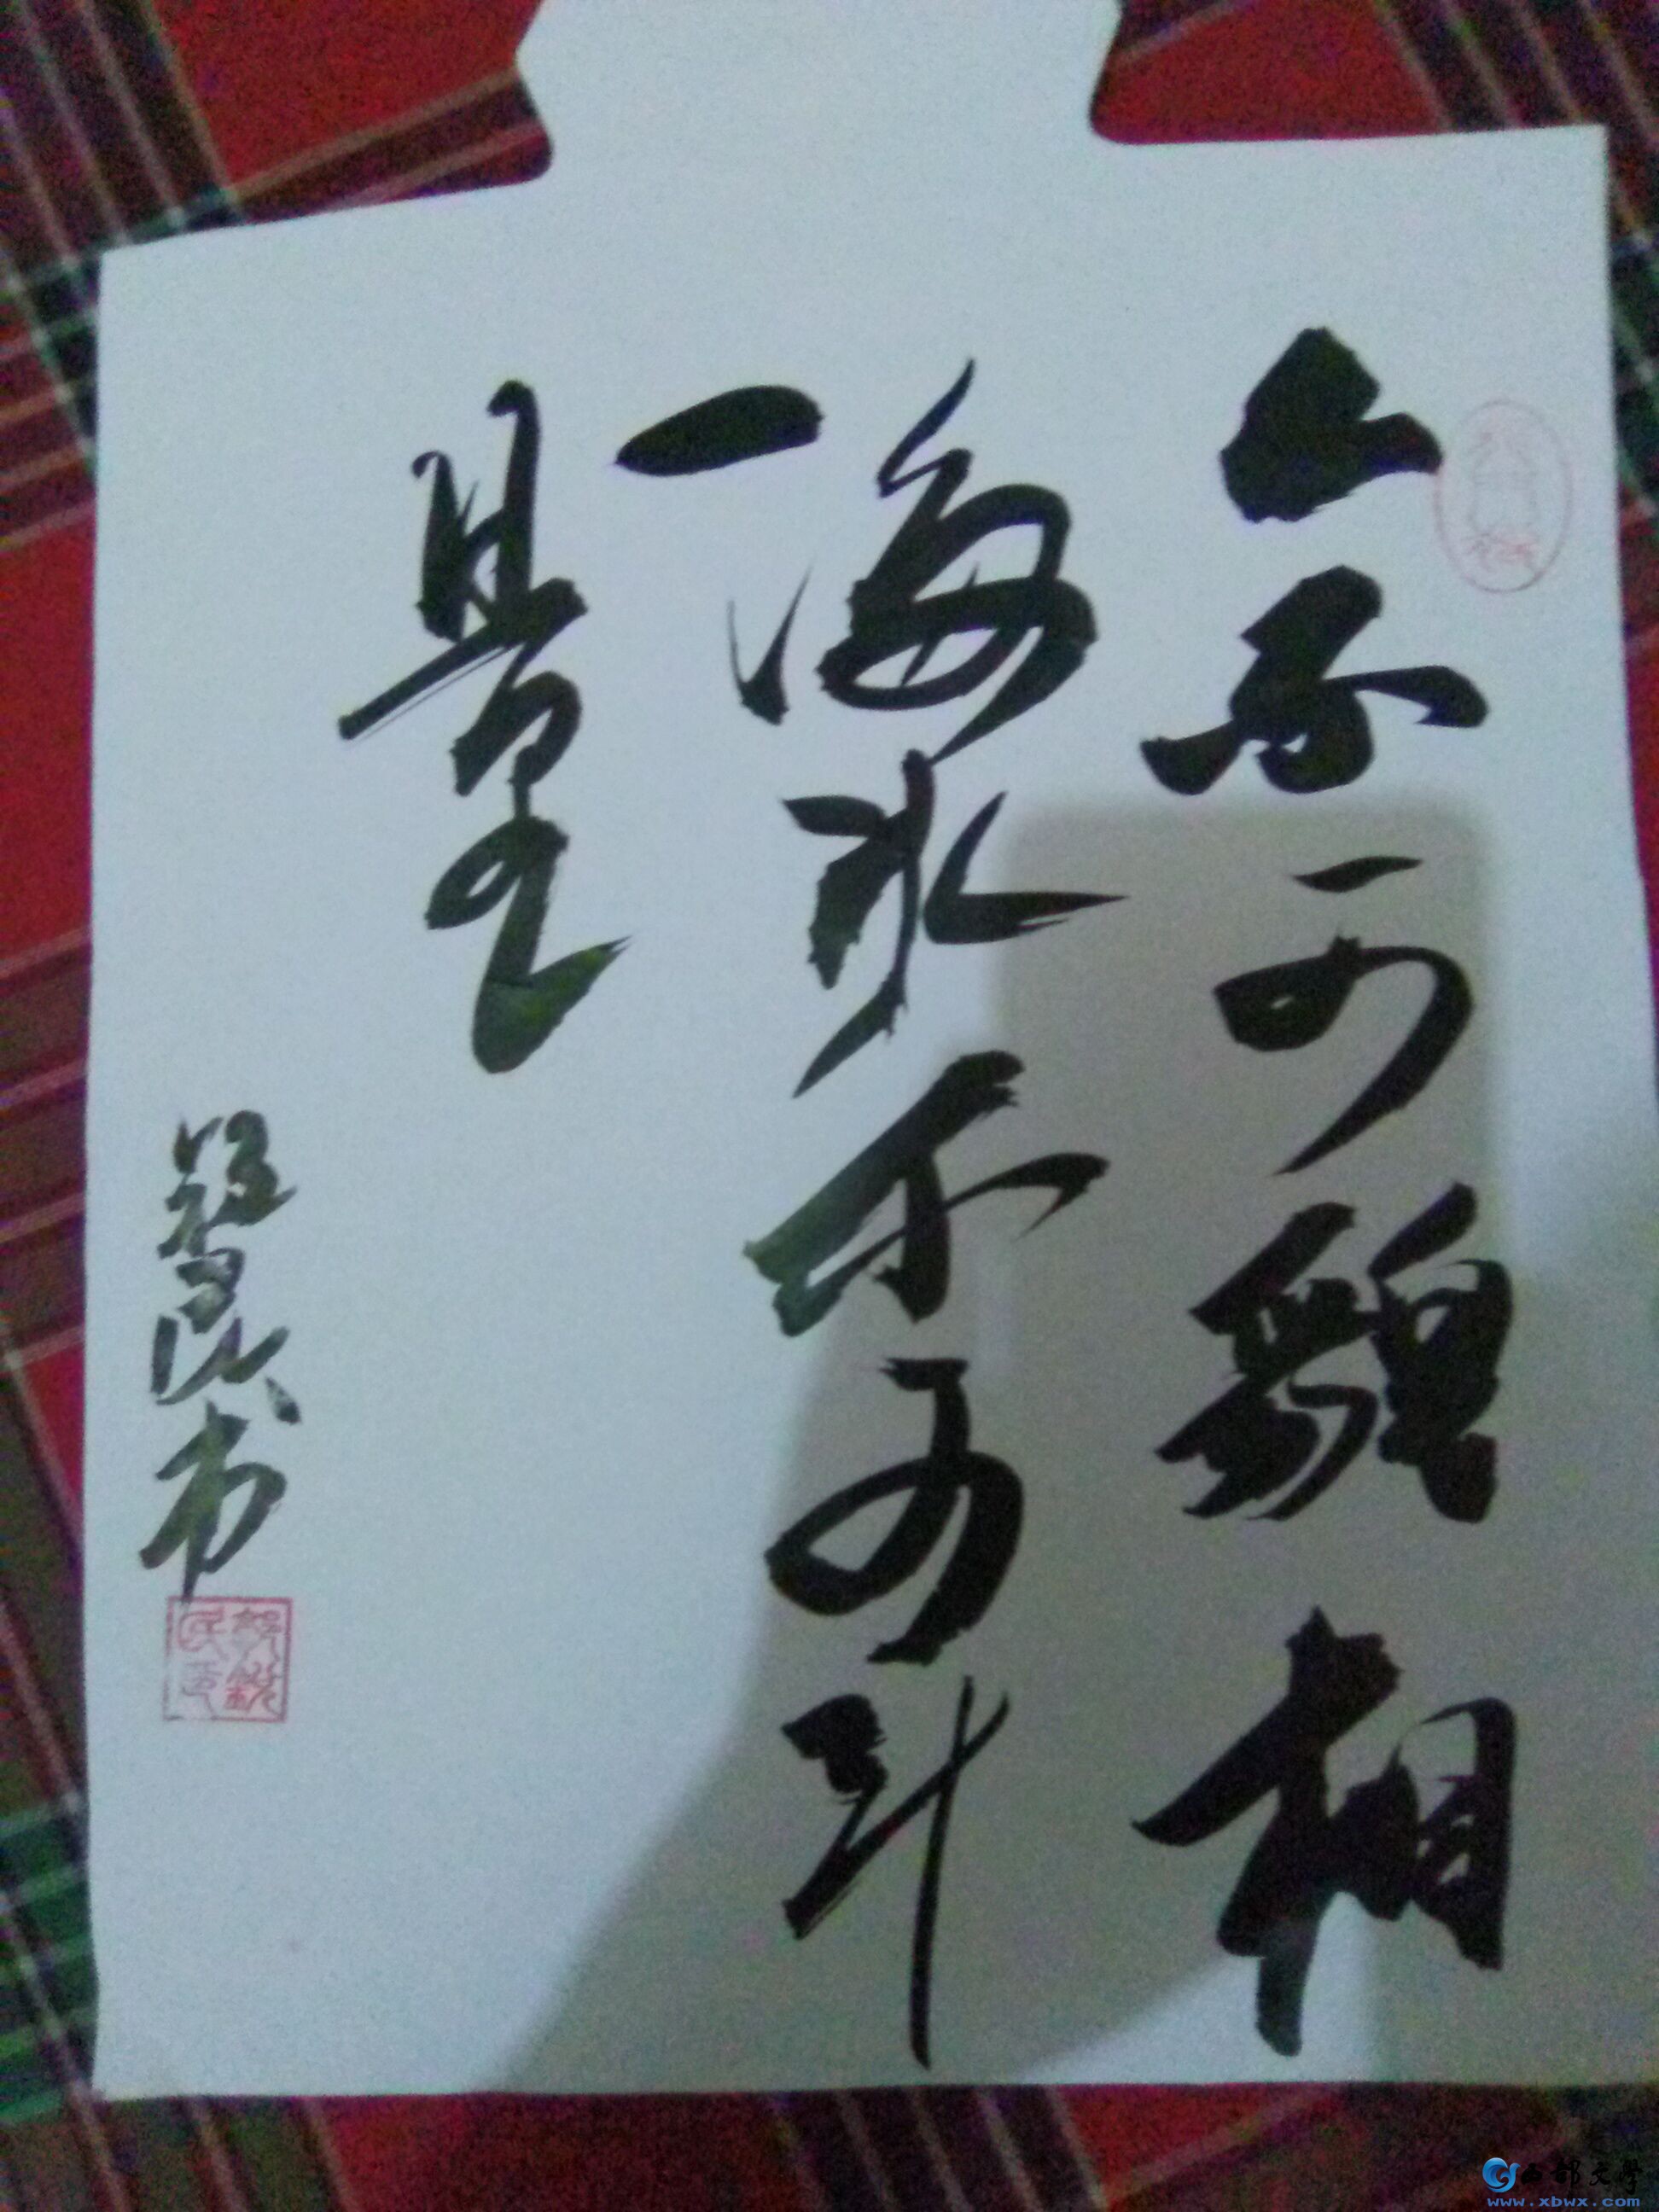 人不可貌相
海水不可斗
量
民书
西部文学
www.xbwx.com